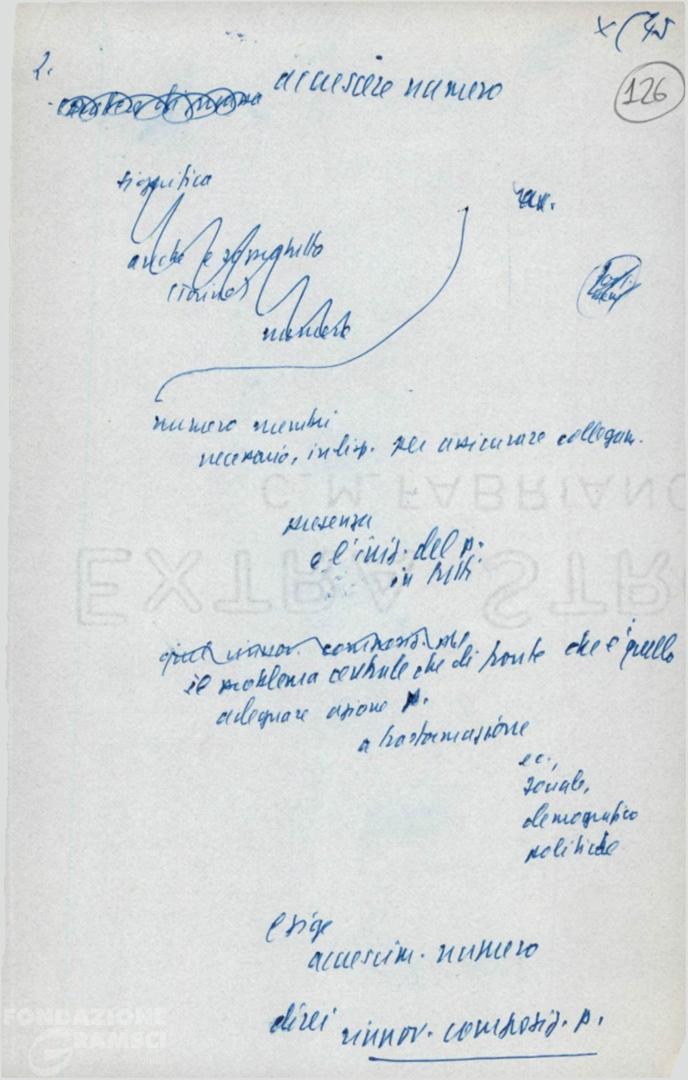 2.
accrescere numero
126
significa
anche
(Torino)
numero membri
necessario, indisp. per assicurare collegam.
presenza
e l'iniz. del p.
in tutti
il problema centrale che di fronte che è quello
adeguare azione p.
a trasformazione
ec.,
sociale,
demografico
politiche
esige
accrescim. numero
direi rinnov. composiz. p.
C. M. FABRIANO
EXTRA STR
FONDAZIONE
GRAMSCI